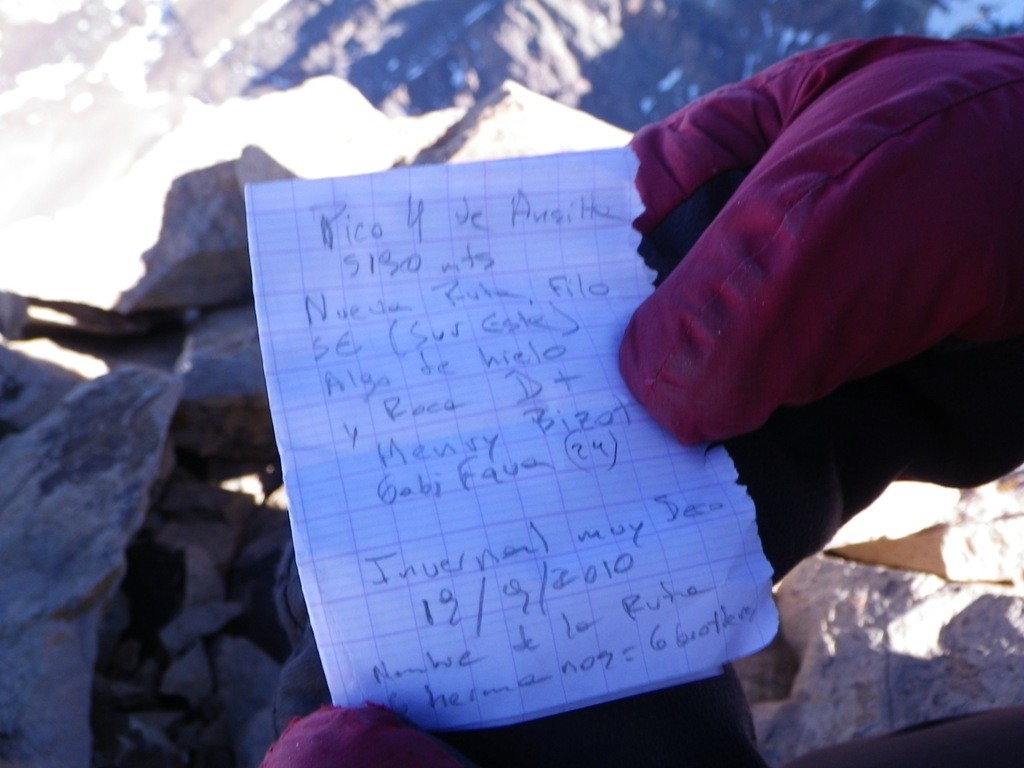 Pico 4 de Ansilta
5130 mts
Nueva Ruta, Filo
SE (Sur Este)
Algo de hielo
y Roca D+
Henry Bizot
Gabi Fava (24)
Invernal muy Seco
19/9/2010
Nombre de la Ruta
6 hermanos = 6 brothers